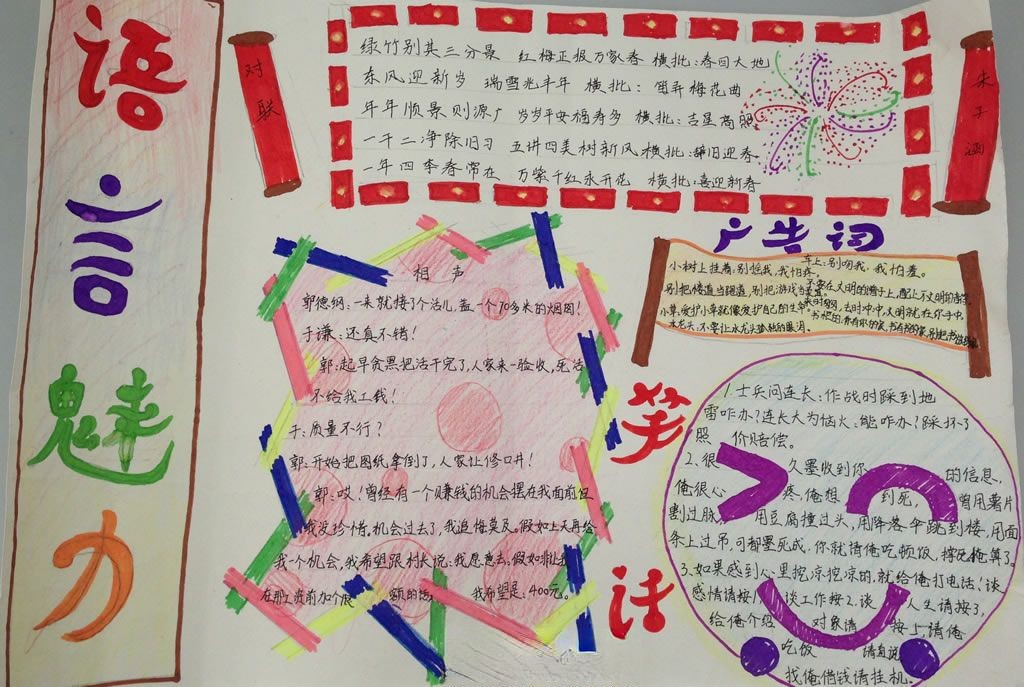 语言魅力
对联
绿竹别其三分景 红梅正报万家春 横批:春回大地
东风迎新岁 瑞雪兆丰年 横批: 笛弄梅花曲
年年顺景则源广 岁岁平安福寿多 横批:吉星高照
一干二净除旧习 五讲四美树新风 横批:辞旧迎春
一年四季春常在 万紫千红永开花 横批:喜迎新春
朱子涵
广告词
小树上挂着:别摇我,我怕疼。
车上:别吻我,我怕羞。
相声
郭德纲:一来就接了个活儿,盖一个70多米的烟囱!
于谦:还真不错!
郭:起早贪黑把活干完了,人家来一验收,死活
不给我工钱!
于:质量不行?
郭:开始把图纸拿倒了,人家让修口井!
郭:哎!曾经有一个赚钱的机会摆在我面前但
我没珍惜。机会过去了,我追悔莫及。假如上天再给
我一个机会,我希望跟村长说:我愿意去,假如非让我
在那工资前加个限 额的话, 我希望是:400元。
笑话
1.士兵问连长:作战时踩到地
雷咋办?连长大为恼火:能咋办?踩坏了
照 价赔偿。
2.很 久墨收到你 的信息,
俺很心 疼,俺想 到死, 曾用薯片
割过脉, 用豆腐撞过头,用降落伞跳到楼,用面
条上过吊,可都墨死成,你就请俺吃顿饭,撑死俺算了。
3.如果感到心里挖凉挖凉的,就给俺打电话!谈
感情请按1, 谈工作按2,谈 人生请按3,
给俺介绍 对象请 按5,请俺
吃饭 请直说
找俺借钱请挂机。